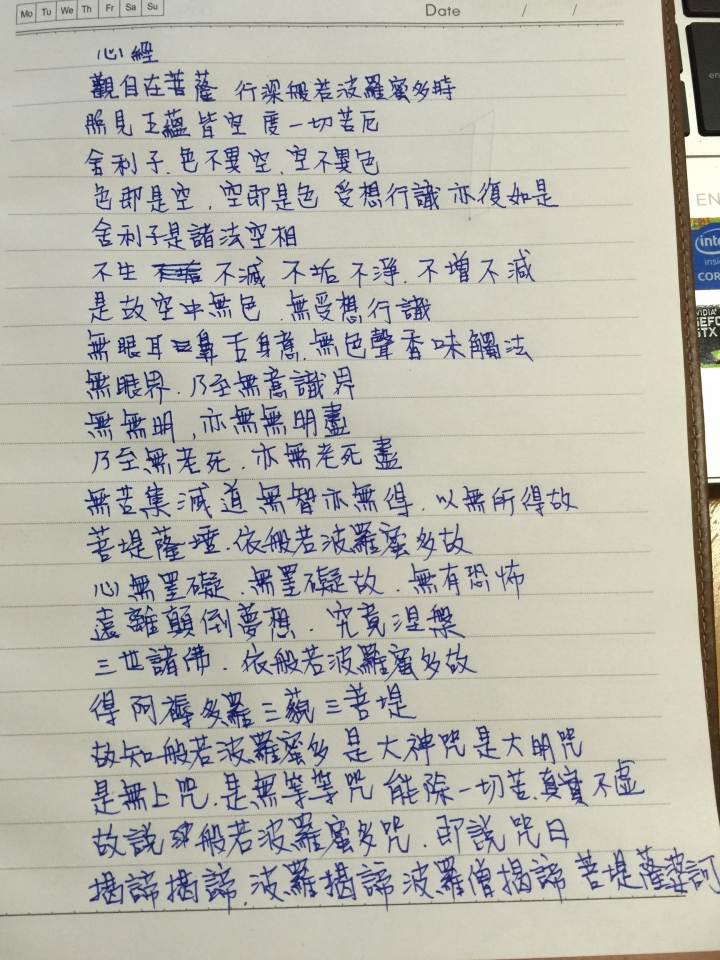 Mo Tu We Th Fr Sa Su
Date / /
心經
觀自在菩薩 行深般若波羅蜜多時
照見五蘊皆空 度一切苦厄
舍利子.色不異空.空不異色
色即是空.空即是色 受想行識 亦復如是
舍利子是諸法空相
不生 不滅 不垢 不淨.不增不減
是故空中無色.無受想行識
無眼耳鼻舌身意.無色聲香味觸法
無眼界.乃至無意識界
無無明.亦無無明盡
乃至無老死.亦無老死盡
無苦集滅道 無智亦無得.以無所得故
菩堤薩埵.依般若波羅蜜多故
心無罣礙.無罣礙故.無有恐怖
遠離顛倒夢想.究竟涅槃
三世諸佛.依般若波羅蜜多故
得阿褥多羅三藐三菩堤
故知般若波羅蜜多 是大神咒 是大明咒
是無上咒.是無等等咒 能除一切苦.真實不虛
故說般若波羅蜜多咒.即說咒曰
揭諦揭諦.波羅揭諦 波羅僧揭諦 菩堤薩婆訶
EN
intel
inside
COR
NVIDIA
GEFO
GTX